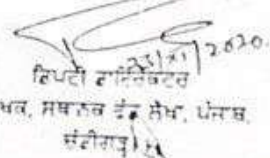 23/11/2020.
ਡਿਪਟੀ ਡਾਇਰੈਕਟਰ
ਸਥਾਨਕ ਫੰਡ ਲੇਖਾ, ਪੰਜਾਬ,
ਚੰਡੀਗੜ੍ਹ